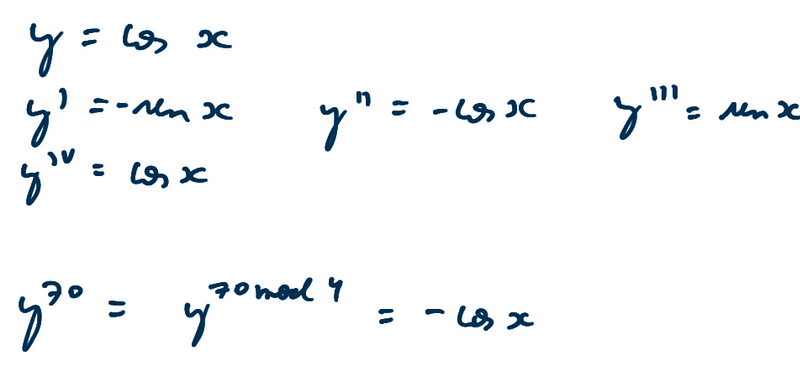 y = cos x
y' = -sen x y'' = -cos x y''' = sen x
y^IV = cos x
y^70 = y^70 mod 4 = -cos x